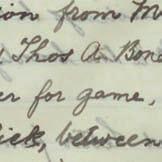 ion from M
Thos A. Bone
er for game,
lick, between